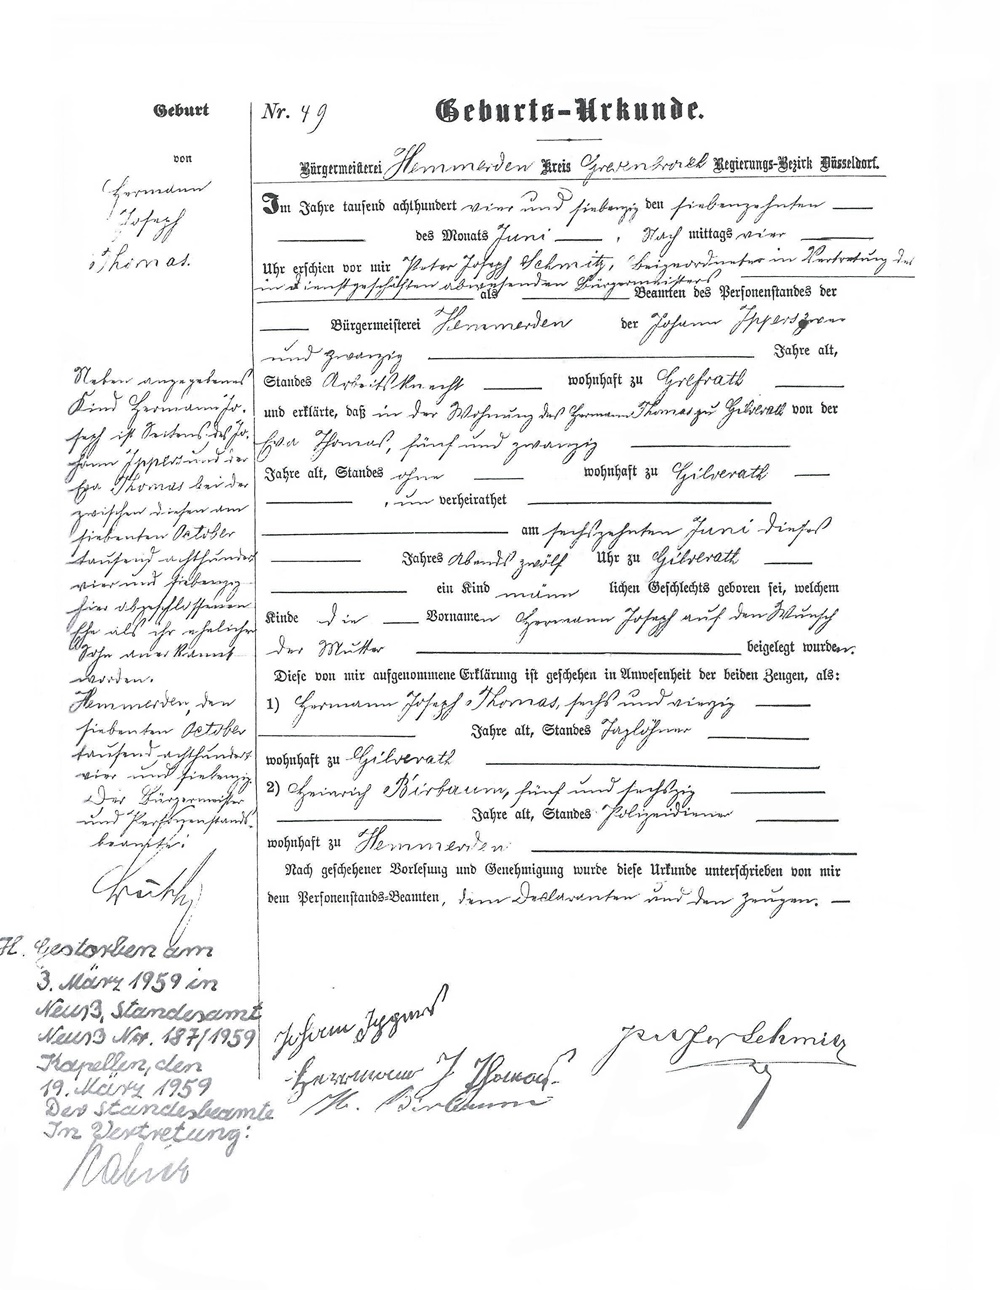 Geburt
von
Hermann
Joseph
Thomas.
Nr. 49
Geburts-Urkunde.
Bürgermeisterei Hemmerden Kreis Grevenbroich Regierungs-Bezirk Düsseldorf.
Im Jahre tausend achthundert vier und siebenzig den siebenzehnten
des Monats Juni, Nach mittags vier
Uhr erschien vor mir Peter Joseph Schmitz, Beigeordneter in Vertretung des
in Dienstgeschäften abwesenden Bürgermeisters
als Beamten des Personenstandes der
Bürgermeisterei Hemmerden der Johann Ippers zwei
und zwanzig Jahre alt,
Standes Arbeitsknecht wohnhaft zu Grefrath
und erklärte, daß in der Wohnung des Hermann Thomas zu Gilverath von der
Eva Thomas, fünf und zwanzig
Jahre alt, Standes ohne wohnhaft zu Gilverath
, un verheirathet
am sechszehnten Juni dieses
Jahres Abends zwölf Uhr zu Gilverath
ein Kind männ lichen Geschlechts geboren sei, welchem
Kinde die Vornamen Hermann Joseph auf den Wunsch
der Mutter beigelegt wurden.
Diese von mir aufgenommene Erklärung ist geschehen in Anwesenheit der beiden Zeugen, als:
1) Hermann Joseph Thomas, sechs und vierzig
Jahre alt, Standes Taglöhner
wohnhaft zu Gilverath
2) Heinrich Birbaum, fünf und sechszig
Jahre alt, Standes Polizeidiener
wohnhaft zu Hemmerden
Nach geschehener Vorlesung und Genehmigung wurde diese Urkunde unterschrieben von mir
dem Personenstands-Beamten, dem Declaranten und den Zeugen.
Johann Ippers
Hermann J Thomas
H. Birbaum
Peter Schmitz
Neben angegebenes
Kind Hermann Jo-
seph ist Seitens des Jo-
hann Ippers und der
Eva Thomas bei der
zwischen diesen am
siebenten October
tausend achthundert
vier und siebenzig
hier abgeschlossenen
Ehe als ihr ehelicher
Sohn anerkannt
worden.
Hemmerden, den
siebenten October
tausend achthundert
vier und siebenzig
Der Bürgermeister
und Personenstands-
beamte:
H. Gestorben am
3. März 1959 in
Neuß, Standesamt
Neuß Nr. 187/1959
Kapellen, den
19. März 1959
Der Standesbeamte
In Vertretung: